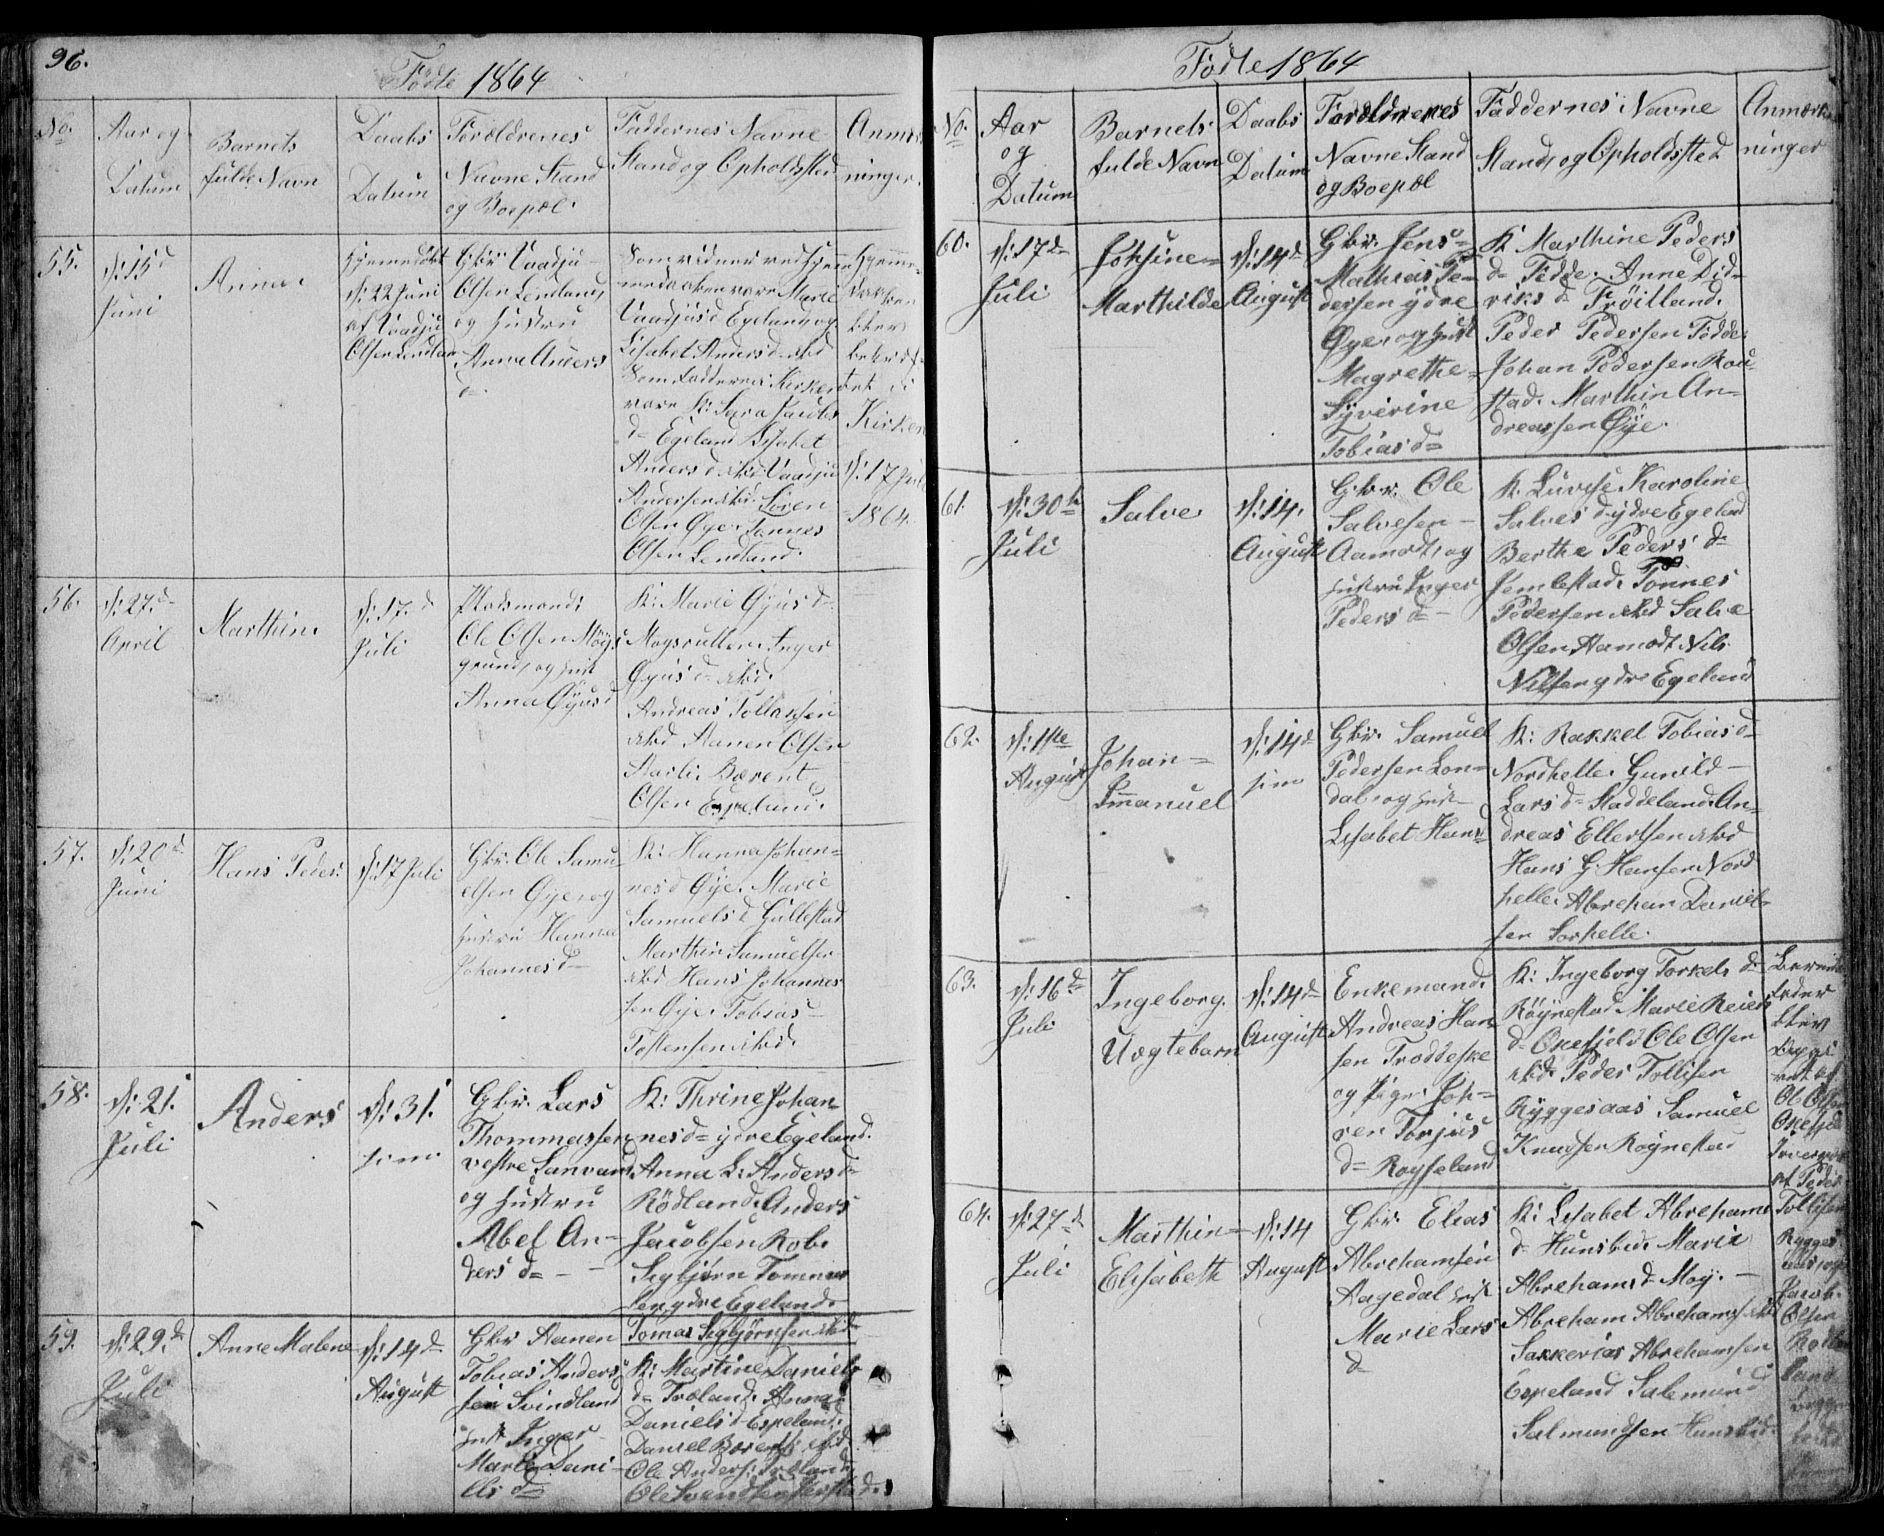 96.
Födte 1864
No.
Aar og
Datum
Barnets
fulde Navn
Daabs
Datum
Forældrenes
Navne Stand
og Boepæl.
Faddernes Navne
Stand og Opholdssted
Anmærk
ninger.
55.
d: 15d
Juni
Anna.
Hjemmedöbt
d: 22 Juni
af Vaadju
Olsen Lendland
Gbr. Vaadju
Olsen Lendland
og Hustru
Anna Anders
d.
Som vidner ved Hjem
medaaben vare Marie
Vaadjus d Egeland og
Lisabet Anders d. ibd
Som Faddernes i Kirken
vare K: Sara Jacobs
d= Egeland Lisabet
Anders d. ibd. Vaadju
Andersen ibd. Sören
Olsen Öye. Tönnes
Olsen Lendland.
Hjemme
daaben
blev
bekræf-
tet i
Kirken
d: 17 Juli
1864.
56.
d: 27. d
April
Marthin.
d: 17. d
Juli
Pladsmand.
Ole Olsen Möys
grund, og Hust
Anna Öyus d
K: Marie Öyus d
Inger
Öyus d= ibd.
Andreas Tollaksen
ibd Aanen Olsen
Bærent
Olsen Espeland.
57.
d: 20 d
Juni
Hans Peder.
d: 17 Juli
Gbr. Ole Samu
elsen Öye og
Hustru Hanna
Johannes d=
K: Hanna Johan=
nes d Öye. Marie
Samuels d Gullestad
Marthin Samuelsen
ibd Hans Johannes
sen Öye. Tobias
Tostensen ibd.
58.
d: 21.
Juli
Anders
d: 31.
s: m:
Gbr. Lars
Thommassen
vestre Sanvand
og Hustru
Abel An-
ders d= - -
K: Thrine Johan
nes d= ydre Egeland.
Anna L: Anders d=
Rödland. Anders
Jacobsen Rob.
Segbjörn Tommes
sen ydre Egeland.
Tomas Segbjörnsen ibd
59.
d: 29. d
Juli
Anne Malene
d: 14 d
August
Gbr Aanen
Tobias Anders
sen Svindland
Hust Inger
Marie Dani-
els d=
K: Martine Daniels
d= Træland. Anna
Daniels d= Espeland.
Daniel Bærents. ibd
Ole Anders: Træland
Ole Svendsen
Födte 1864
No.
Aar
og
Datum
Barnets
fulde Navn
Daabs
Datum
Forældrenes
Navne Stand
og Boepæl
Faddernes Navne
Stand, og Opholdssted
Anmærk
ninger
60.
d: 17 d
Juli
Johsine=
Marthilde
d: 14 d
August
Gbr. Jens
Mathias Pe=
dersen ydre
Öye og Hust
Magrethe=
Syverine
Tobias d=
K Marthine Peders
d= Fidde. Anne Did=
riks d Fröitland.
Peder Pedersen Fidde.
Johan Pedersen Rou
stad. Marthin An=
dreassen Öye.
61.
d: 30 te
Juli
Salve
d: 14.
August
Gbr. Ole
Salvesen
Aamodt, og
Hustru Inger
Peders d=
K. Lovise Karoline
Salves d ydre Egeland
Berthe Peders d=
Jemlestad. Tönnes
Pedersen ibd Salve
Olsen Aamodt Nils
Nilsen ydre Egeland
62.
d: 1ste
August
Johan=
Imanuel
d: 14 d
s: m
Gbr. Samuel
Pedersen Lon=
dal og Hust
Lisabet Hans d=
K: Rakkel Tobias d=
Nordhelle. Gunild
Lars d= Staddeland. An=
dreas Ellertsen ibd
Hans G. Hansen Nord
helle. Abrehan Daniel=
sen Sorhelle.
63.
d: 16 d
Juli
Ingeborg.
Uægtebarn
d: 14 d
August
Enkemand.
Andreas Han
sen Troddeske
og Pige: Joh=
ren Torjus
d= Royseland
K: Ingeborg Torkels d=
Röynestad Marie Reiers
d= Okefjeld Ole Olsen
ibd. Peder Tollisen
Ryggesaas Samuel
Knudsen Rognestad
blev
af
Ole Olsen
Okefjeld
Peder
Tollisen
Rygges
aas og
Jacob
Olsen
64.
d: 27 d
Juli
Marthin=
Elisabeth
d: 14
August
Gbr. Elias
Abrehamsen
Aagedal Hust
Marie Lars
d=
K: Lisabet Abrehams
d= Hunsbed. Marie
Abrehams d Moy.
Abreham Abrehamsen ibd
Sakkerias Abrehamsen
Espeland Salemund
Salmundsen Hunsbed.